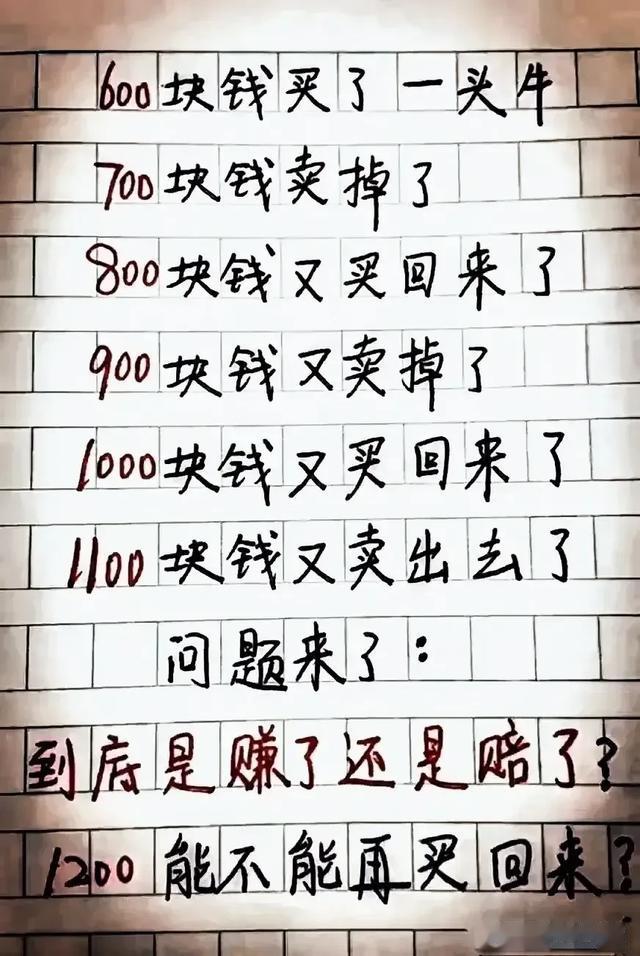 600块钱买了一头牛
700块钱卖掉了
800块钱又买回来了
900块钱又卖掉了
1000块钱又买回来了
1100块钱又卖出去了
问题来了：
到底是赚了还是赔了？
1200能不能再买回来？